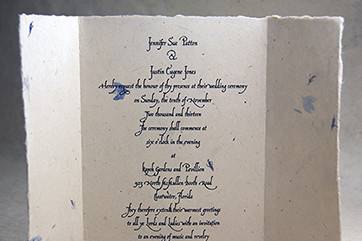 Jennifer Sue Patton
@
Justin Eugene Jones
Hereby request the honour of thy presence at their wedding ceremony
on Sunday, the tenth of November
Two thousand and thirteen
The ceremony shall commence at
six o'clock in the evening
at
Kapok Gardens and Pavillion
923 North McMullen Booth Road
Clearwater, Florida
They therefore extend their warmest greetings
to all ye Lords and Ladies with an invitation
to an evening of music and revelry